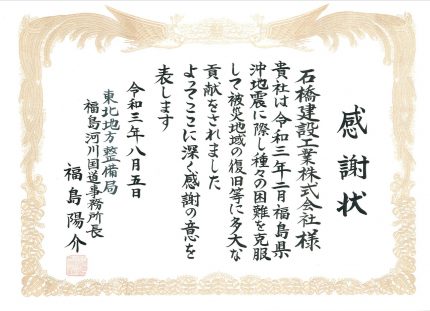 感謝状
石橋建設工業株式会社様
貴社は令和三年二月福島県
沖地震に際し種々の困難を克服
して被災地域の復旧等に多大な
貢献をされました
よってここに深く感謝の意を
表します
令和三年八月五日
東北地方整備局
福島河川国道事務所長
福島陽介